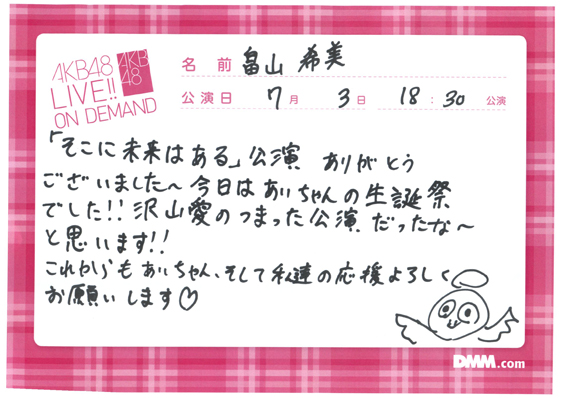 AKB48
LIVE!!
ON DEMAND
AKB
48
名前 畠山 希美
公演日 7月 3日 18:30 公演
「そこに未来はある」公演 ありがとう
ございました〜今日はあいちゃんの生誕祭
でした!!沢山愛のつまった公演だったな〜
と思います!!
これからもあいちゃん、そして私達の応援よろしく
お願いします♡
DMM.com